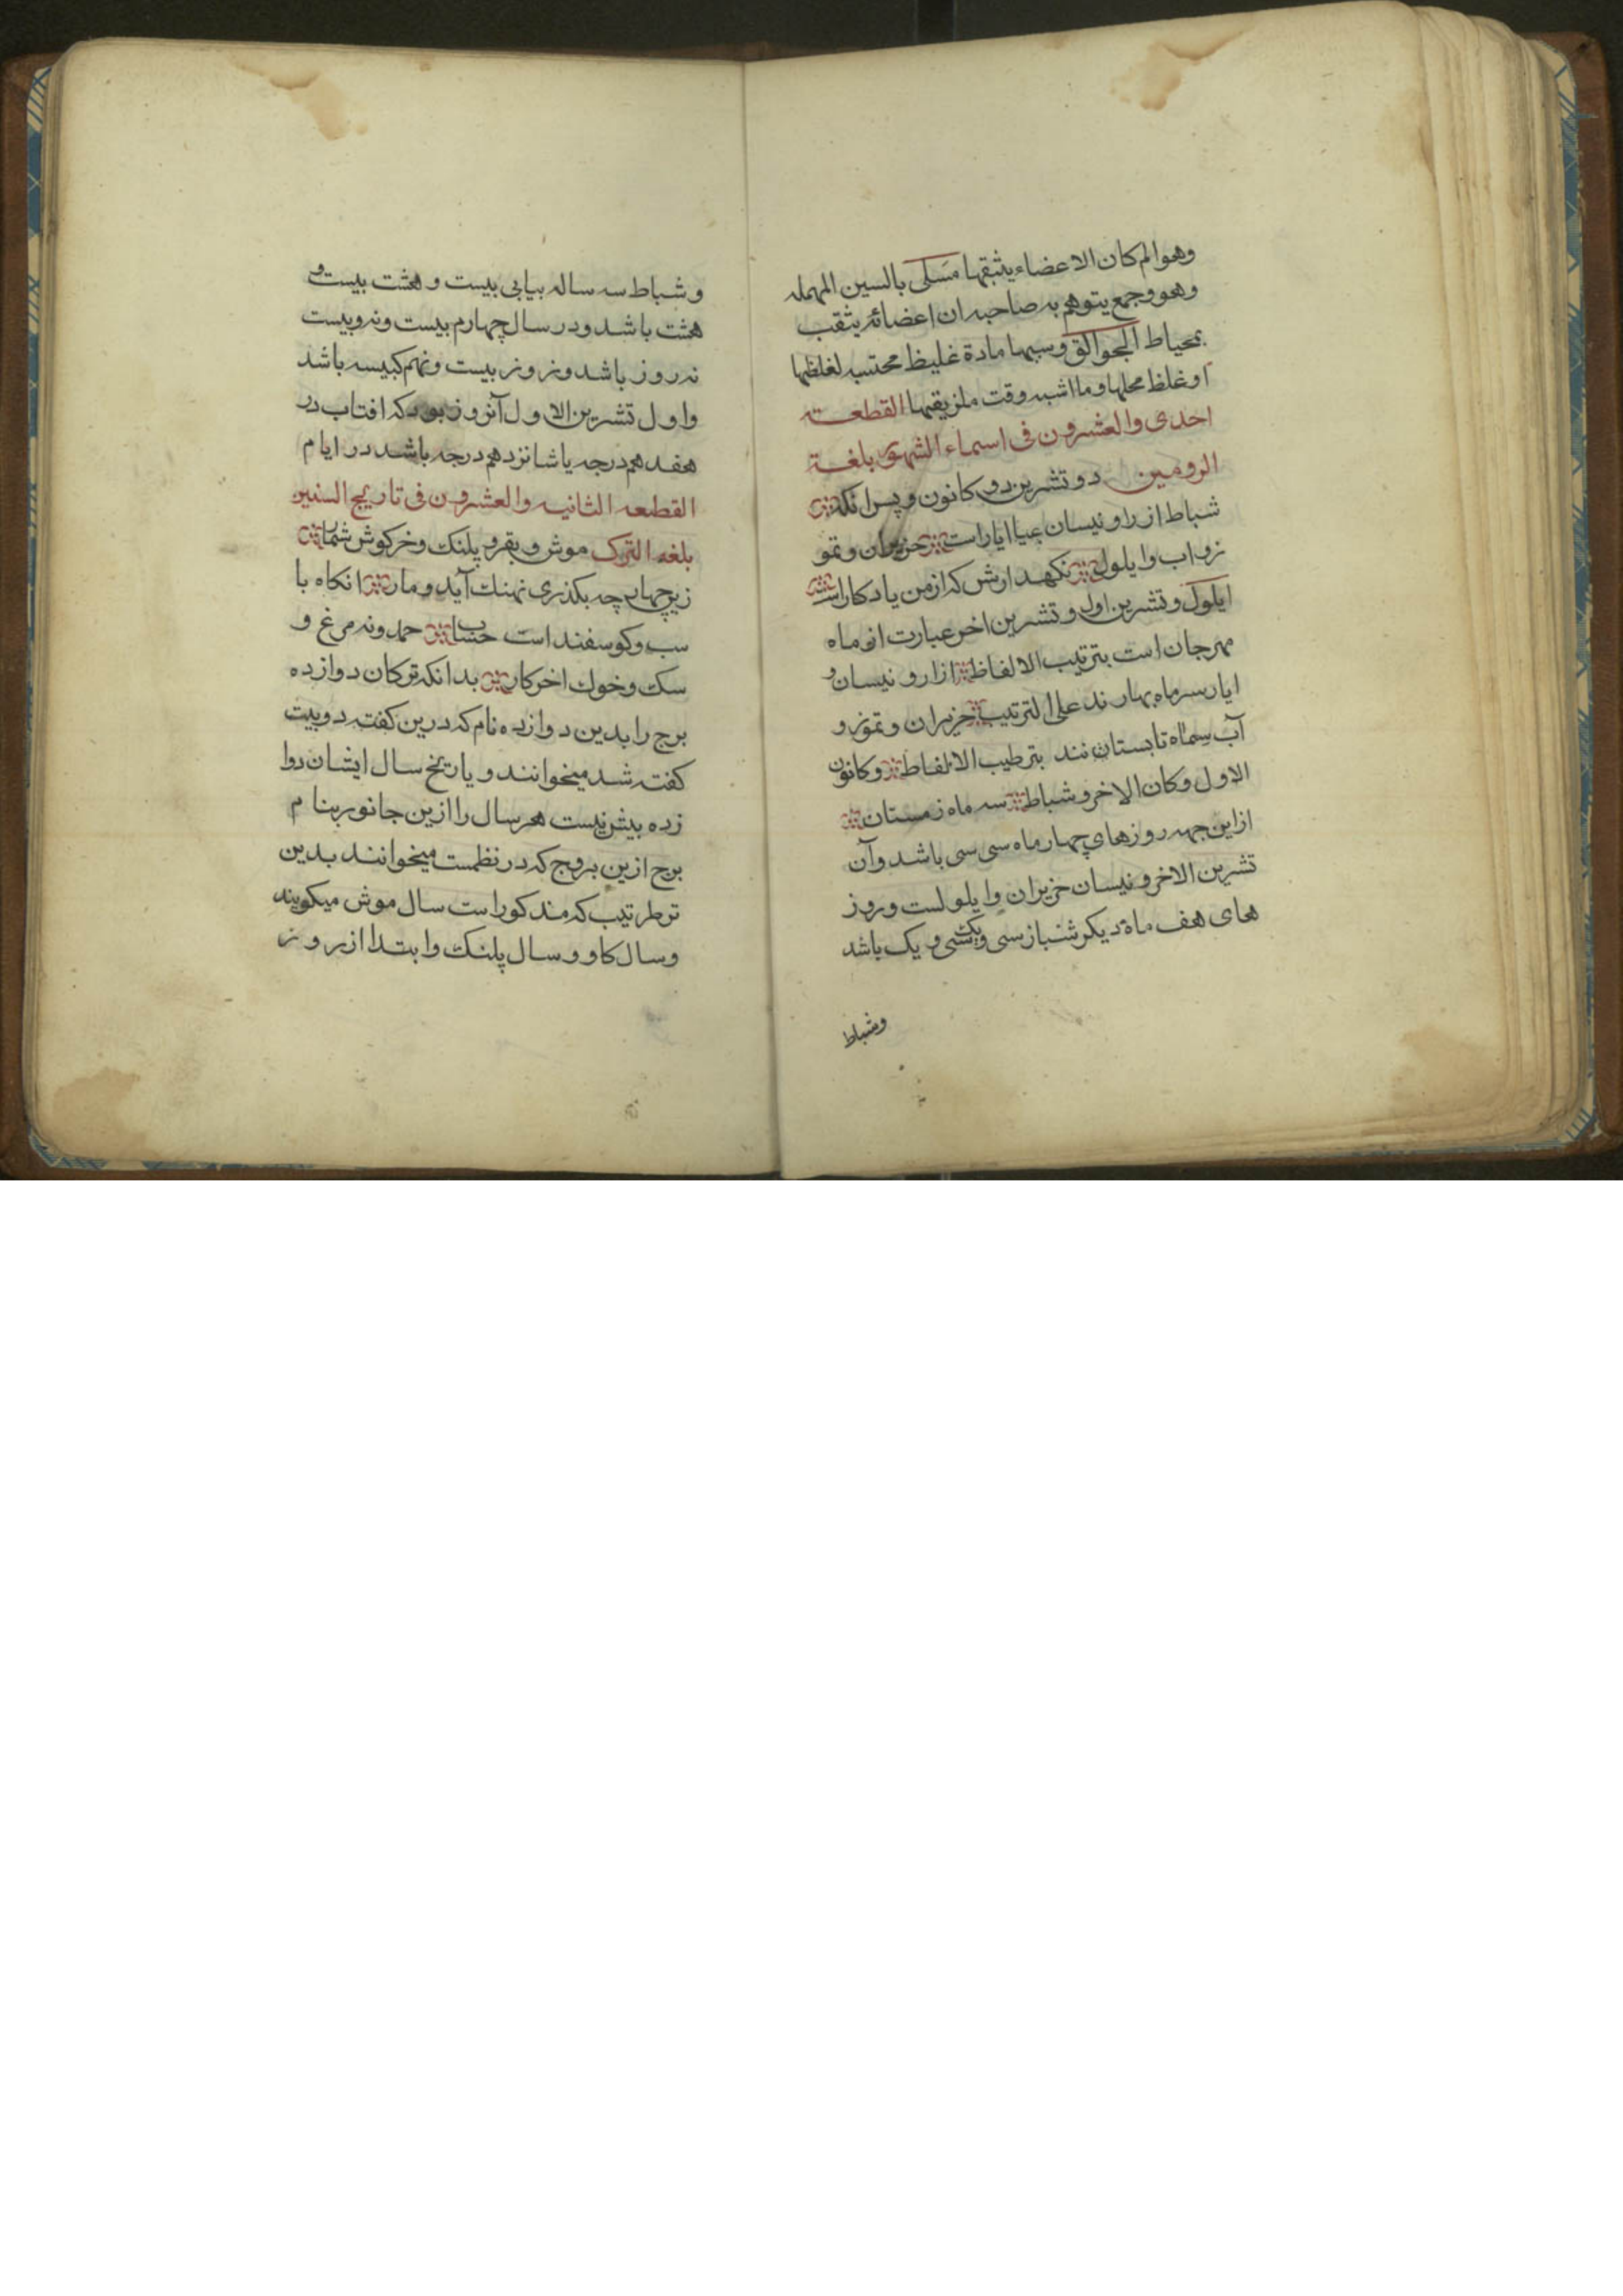 وهوالم كان الاعضاء يثبقها مسلى بالسين المهمله
وهو وجمع يتوهم به صاحبه ان اعضائه يثقب
بمحياط الجوالق وسببها مادة غليظ محتسبه لغلظها
اوغلظ محلها وما اشبه وقت ملزيقها القطعته
احدى والعشرون فى اسماء الشهور بلغة
الرومين دو تشرين دو كانون و پس انكه
شباط ازرا ونيسان عيا ايار است حزيران و تمو
ز و اب وا يلول نكهدارش كه ازمن يادكار است
ايلول و تشرين اول و تشرين اخر عبارت از ماه
مهرجان است بترتيب الالفاظ ازار و نيسان و
ايار سر ماه بهار ند على الترتيب حزيران و تموز و
آب سماه تابستان نند بترطيب الالفاط و كانون
الاول وكان الاخر و شباط سه ماه زمستان
ازاين جهه روزهاى چهار ماه سى سى باشد وآن
تشرين الاخر و نيسان حزيران وا يلولست وروز
هاى هف ماه ديكر شنباز سى ويك سى و يك باشد
وشباط
و شباط سه ساله بيابى بيست و هشت بيست و
هشت باشد ودر سال چهارم بيست ونه وبيست
نه روز باشد ونروز بيست ونهم كبيسه باشد
واول تشرين الاول آنروز بود كه افتاب در
هفدهم درجه يا شانزدهم درجه باشد در ايام
القطعه الثانيه والعشرون فى تاريح السنين
بلغه الترك موش و بقر و پلنك وخركوش شمار
زيچهار چه بكذرى نهنك آيد و مار انكاه با
سب وكوسفند است حساب حمدونه مرغ و
سك وخوك اخركار بدانكه تركان دوازده
برج را بدين دوازده نام كه درين كفته دوبيت
كفته شد ميخوانند و ياريخ سال ايشان دوا
زده بيش نيست هرسال را ازين جانور بنام
برج ازين بروج كه در نظمست ميخوانند بدين
ترطرتيب كه مندكوراست سال موش ميكويند
وسال كاو و سال پلنك وا بتدا ازروز